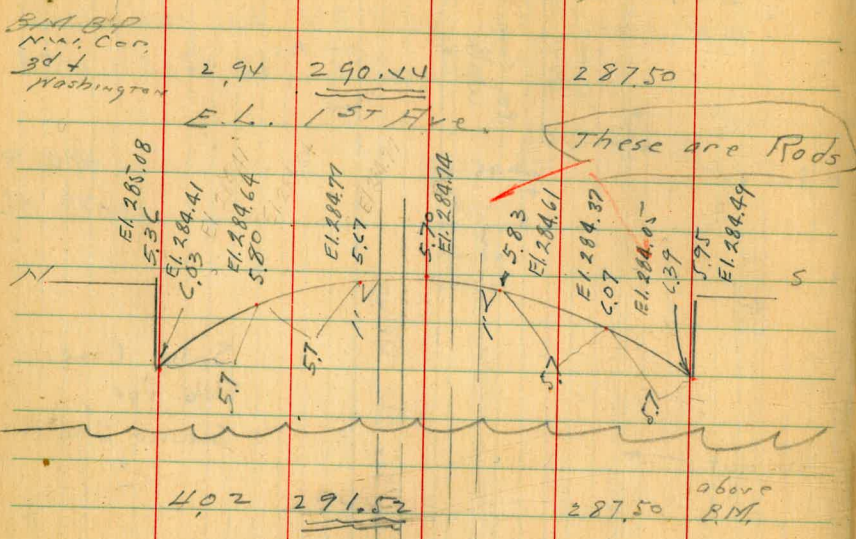 B.M. B.P.
N.W. Cor.
3d &
Washington
2.94 290.44 287.50
E.L. 1ST Ave.
These are Rods
El. 285.08
5.36
El. 284.41
6.03
El. 284.64
5.80
El. 284.77
5.67
5.70
El. 284.74
5.83
El. 284.61
El. 284.37
6.07
El. 284.05
6.39
5.95
El. 284.49
N
S
5.7
5.7
5.7
5.7
4.02 291.52 287.50 above
B.M.